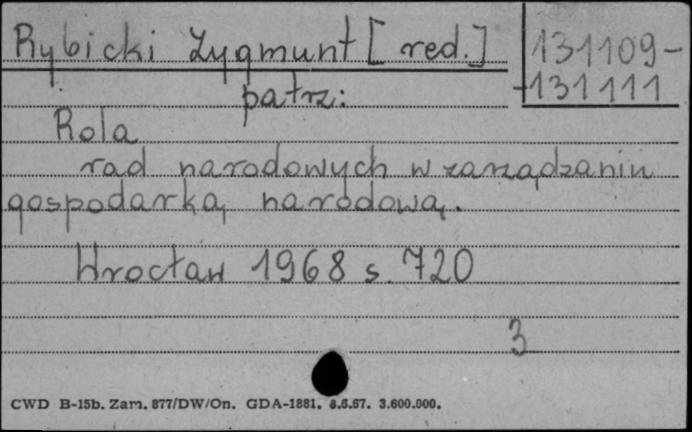 Rybicki Zygmunt [red.]
131109-
-131111
patrz:
Rola
rad narodowych w zarządzaniu
gospodarką narodową.
Wrocław 1968 s. 720
3
CWD B-15b. Zam. 877/DW/On. GDA-1881. 8.6.67. 3.600.000.